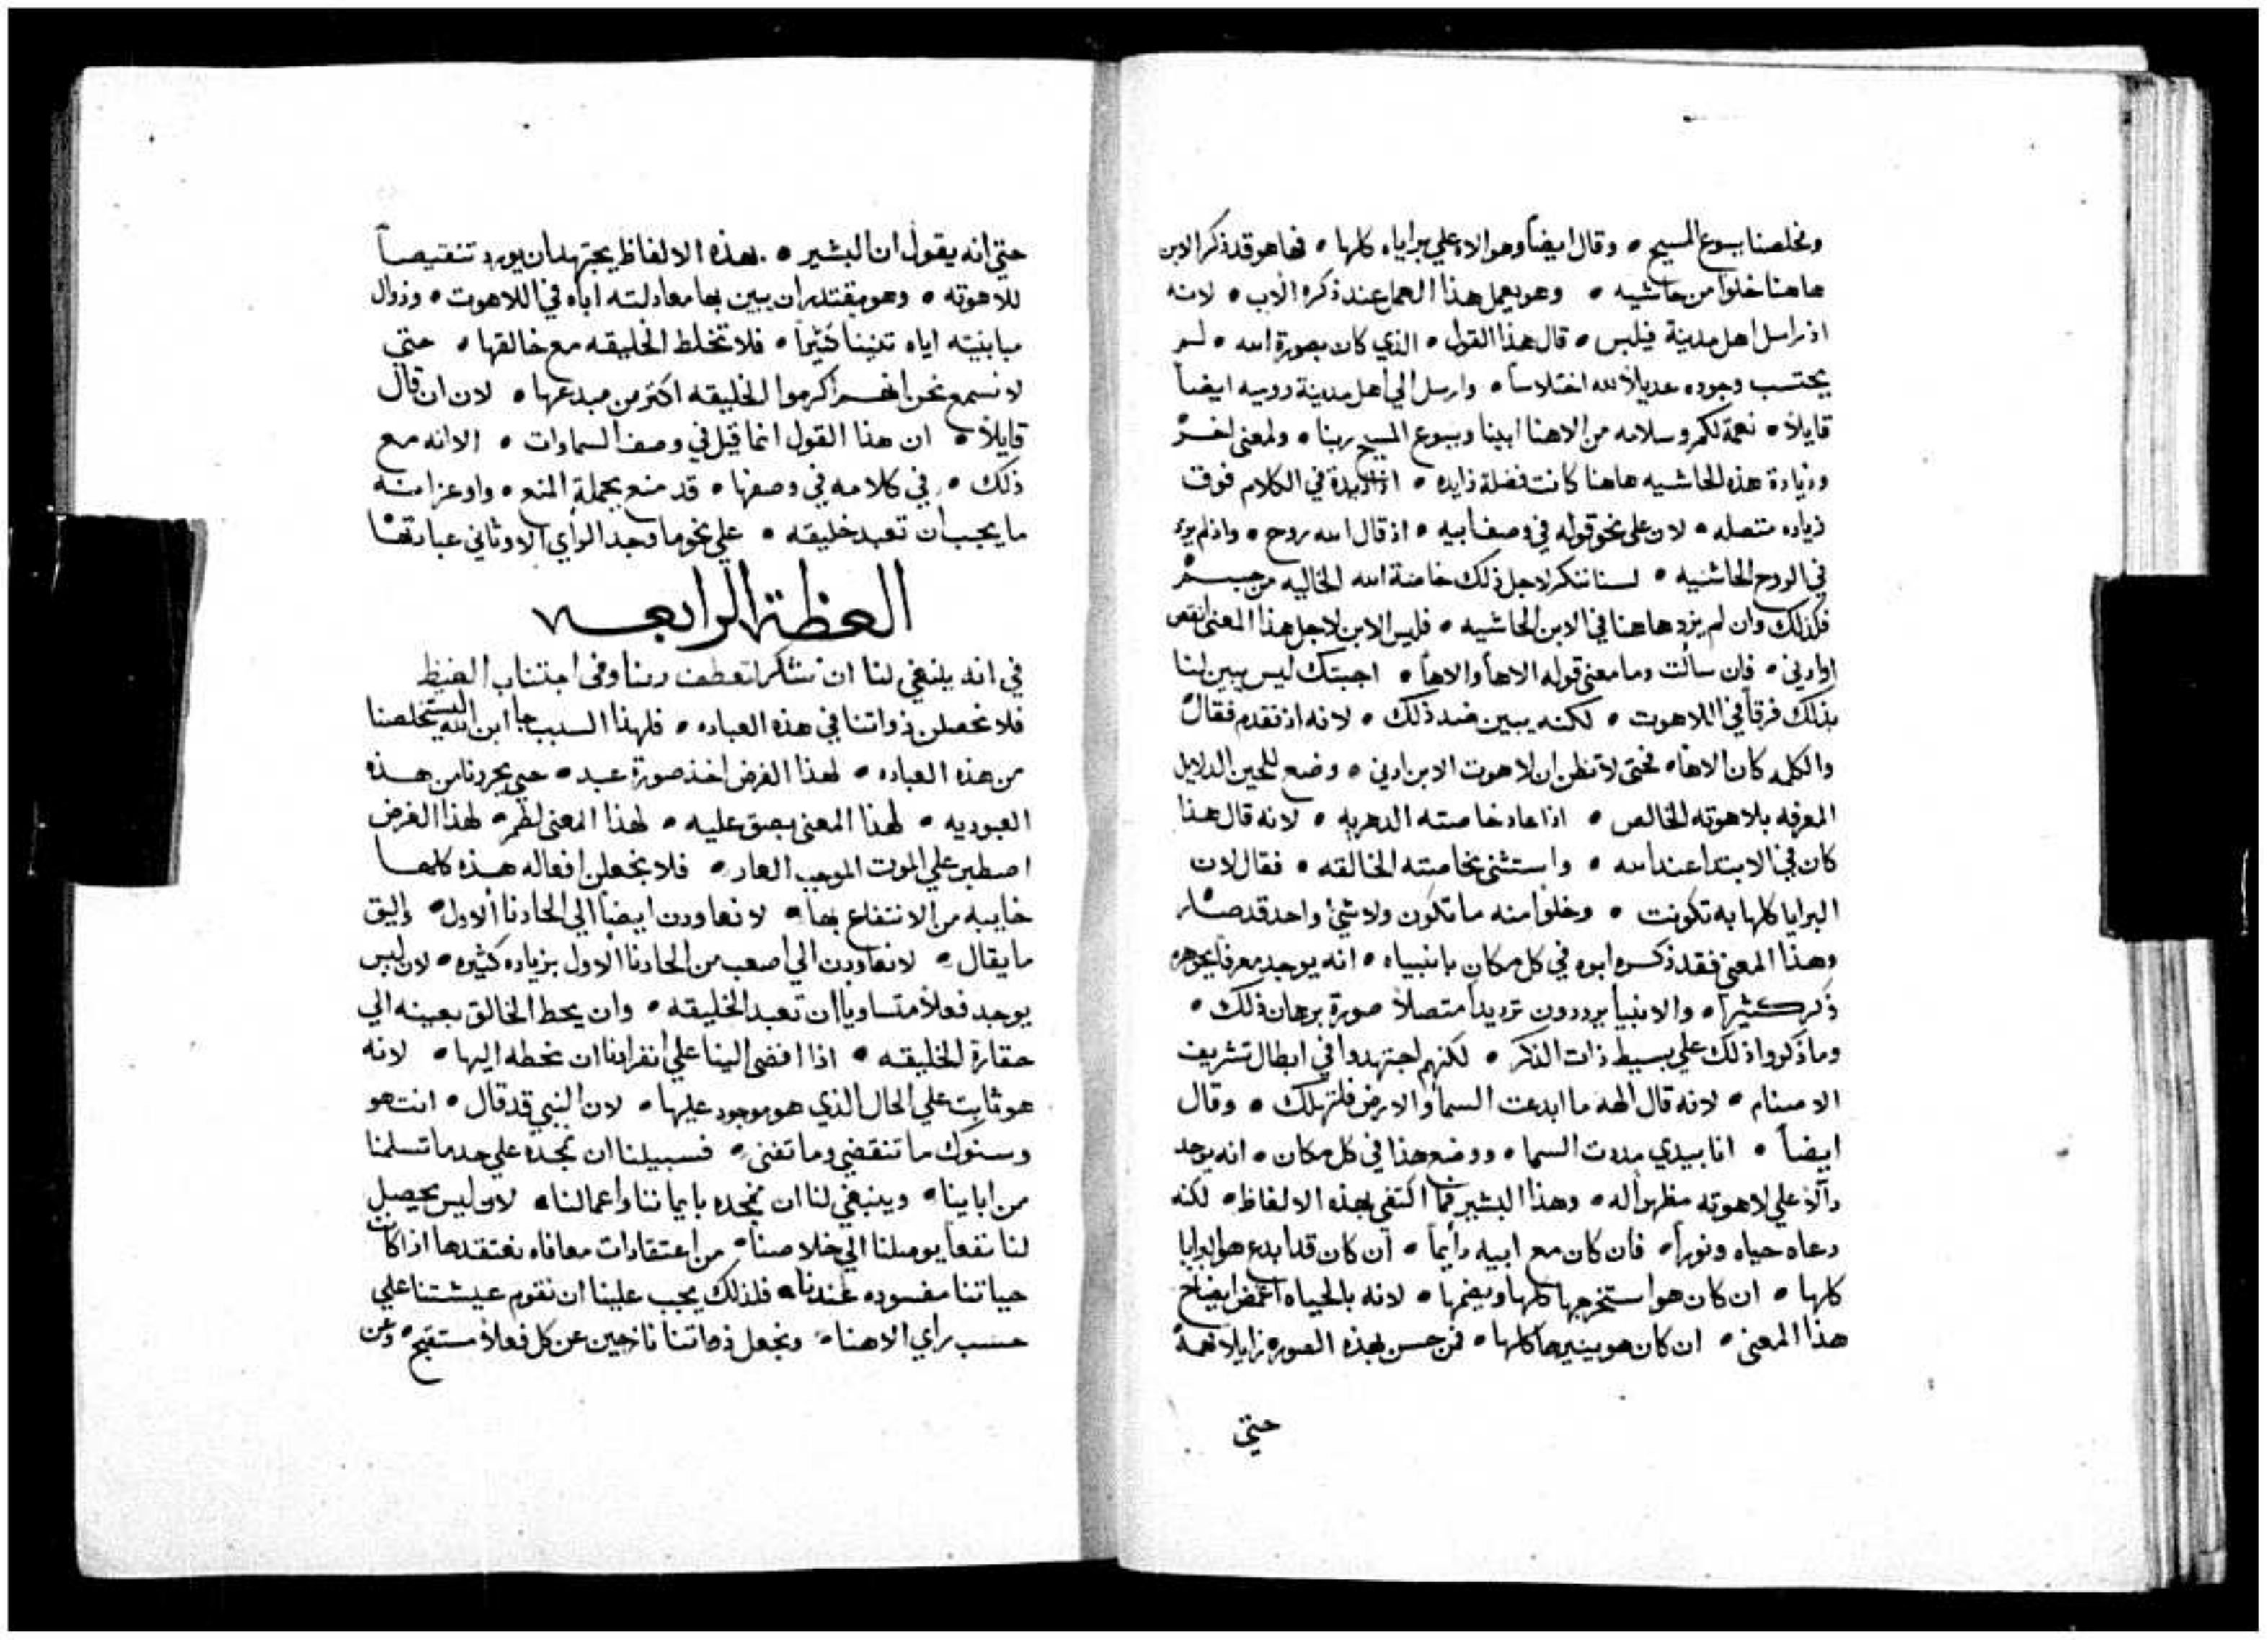 ومخلصنا يسوع المسيح • وقال ايضاً وهو الاه علي براياه كلها • فها هو قد ذكر الابن
هاهنا خلواً من حاشيه • وهو يعمل هذا العمل عند ذكره الاب • لانه
اذ راسل اهل مدينة فيلبس • قال هذا القول • الذي كان بصورة الله • لم
يحتسب وجوده عديلاً لله اختلاساً • وارسل الي اهل مدينة روميه ايضاً
قايلاً • نعمة لكم وسلامه من الاهنا ابينا ويسوع المسيح ربنا • ولمعني اخر
وزيادة هذه الحاشيه هاهنا كانت فضلة زايده • في الكلام فوق
زياده متصله • لان علي نحو قوله في وصف ابيه • اذ قال الله روح • واذ لم يزد
في الروح الحاشيه • لسنا ننكر لاجل ذلك خاصة الله الخاليه من جسم
فكذلك وان لم يزد هاهنا في الابن الحاشيه • فليس الابن لاجل هذا المعني انقص
اوادني • فان سألت وما معني قوله الاهاً والاهاً • اجبتك ليس يبين لنا
بذلك فرقاً في اللاهوت • لكنه يبين ضد ذلك • لانه اذ تقدم فقال
والكلمه كان الاهاً • فحتي لا تظن ان لاهوت الابن ادني • وضع للحين الدلايل
المعرفه بلاهوته الخالص • اذا عاد خاصته الدهريه • لانه قال هذا
كان في الابتدا عند الله • واستثني بخاصته الخالقه • فقال لان
البرايا كلها به تكونت • وخلواً منه ما تكون ولا شيء واحد قد صار
وهذا المعني فقد ذكره ابوه في كل مكان بانبياه • انه يوجد معرفاً بجوهره
ذكر كثيراً • والانبيا يرددون ترديداً متصلاً صورة برهان ذلك •
وما ذكروا ذلك علي بسيط ذات الذكر • لكنهم اجتهدوا في ابطال تشريف
الاصنام • لانه قال الهه ما ابدعت السما والارض فلتهلك • وقال
ايضاً • انا بيدي مددت السما • ووضع هذا في كل مكان • انه يوجد
دآلاً علي لاهوته مظهراً له • وهذا البشير فما اكتفي بهذه الالفاظ • لكنه
دعاه حياه ونوراً • فان كان مع ابيه دايماً • ان كان قد ابدع هو البرايا
كلها • ان كان هو استخرجها كلها ويضمها • لانه بالحياه
هذا المعني • ان كان هو ينيرها كلها • فمن حسن بهذه الصوره زايلاً فهمه
حتي
حتي انه يقول ان البشير • بهذه الالفاظ يجتهد ان يورد تنقيصاً
للاهوته • وهو يقتدر ان يبين بها معادلته اباه في اللاهوت • وزوال
مباينته اياه تبييناً كثيراً • فلا نخلط الخليقه مع خالقها • حتي
لا نسمع نحن انهم اكرموا الخليقه اكثر من مبدعها • لان ان قال
قايلاً • ان هذا القول انما قيل في وصف السماوات • الا انه مع
ذلك • في كلامه في وصفها • قد منع بجملة المنع • واوعز انه
ما يجب ان تعبد خليقه • علي نحو ما وجد الرأي الاوثاني عبادتها
العظة الرابعه
في انه ينبغي لنا ان نشكر تعطف ربنا وفي اجتناب الغيظ
فلا نحصلن ذواتنا في هذه العباده • فلهذا السبب جا ابن الله ليستخلصنا
من هذه العباده • لهذا الغرض اخذ صورة عبد • حتي يحررنا من هذه
العبوديه • لهذا المعني بصق عليه • لهذا المعني لطم • لهذا الغرض
اصطبر علي الموت الموجب العار • فلا نجعلن افعاله هذه كلها
خايبه من الانتفاع بها • لا نعاودن ايضاً الي الحادنا الاول • واليق
ما يقال • لا نعاودن الي اصعب من الحادنا الاول بزياده كثيره • لان ليس
يوجد فعلاً متساوياً ان تعبد الخليقه • وان يحط الخالق بعينه الي
حقارة الخليقه • اذا افضي الينا علي انفرادنا ان نحطه اليها • لانه
هو ثابت علي الحال الذي هو موجود عليها • لان النبي قد قال • انت هو
وسنوك ما تنقضي وما تفني • فسبيلنا ان نمجده علي حد ما تسلمنا
من ابايينا • وينبغي لنا ان نمجده بايماننا واعمالنا • لان ليس يحصل
لنا نفعاً يوصلنا الي خلاصنا • من اعتقادات معافاه نعتقدها اذا كانت
حياتنا مفسوده عندنا • فلذلك يجب علينا ان نقوم عيشتنا علي
حسب راي الاهنا • ونجعل ذواتنا نازحين عن كل فعلاً مستقبح • وعن